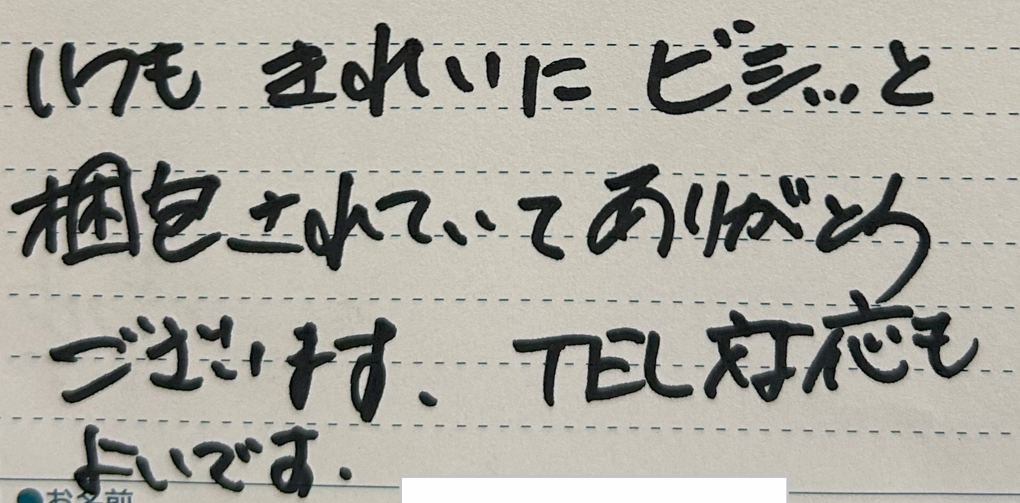 いつも きれいに ビシッと
梱包されていてありがとう
ございます. TEL対応も
よいです.
●お名前